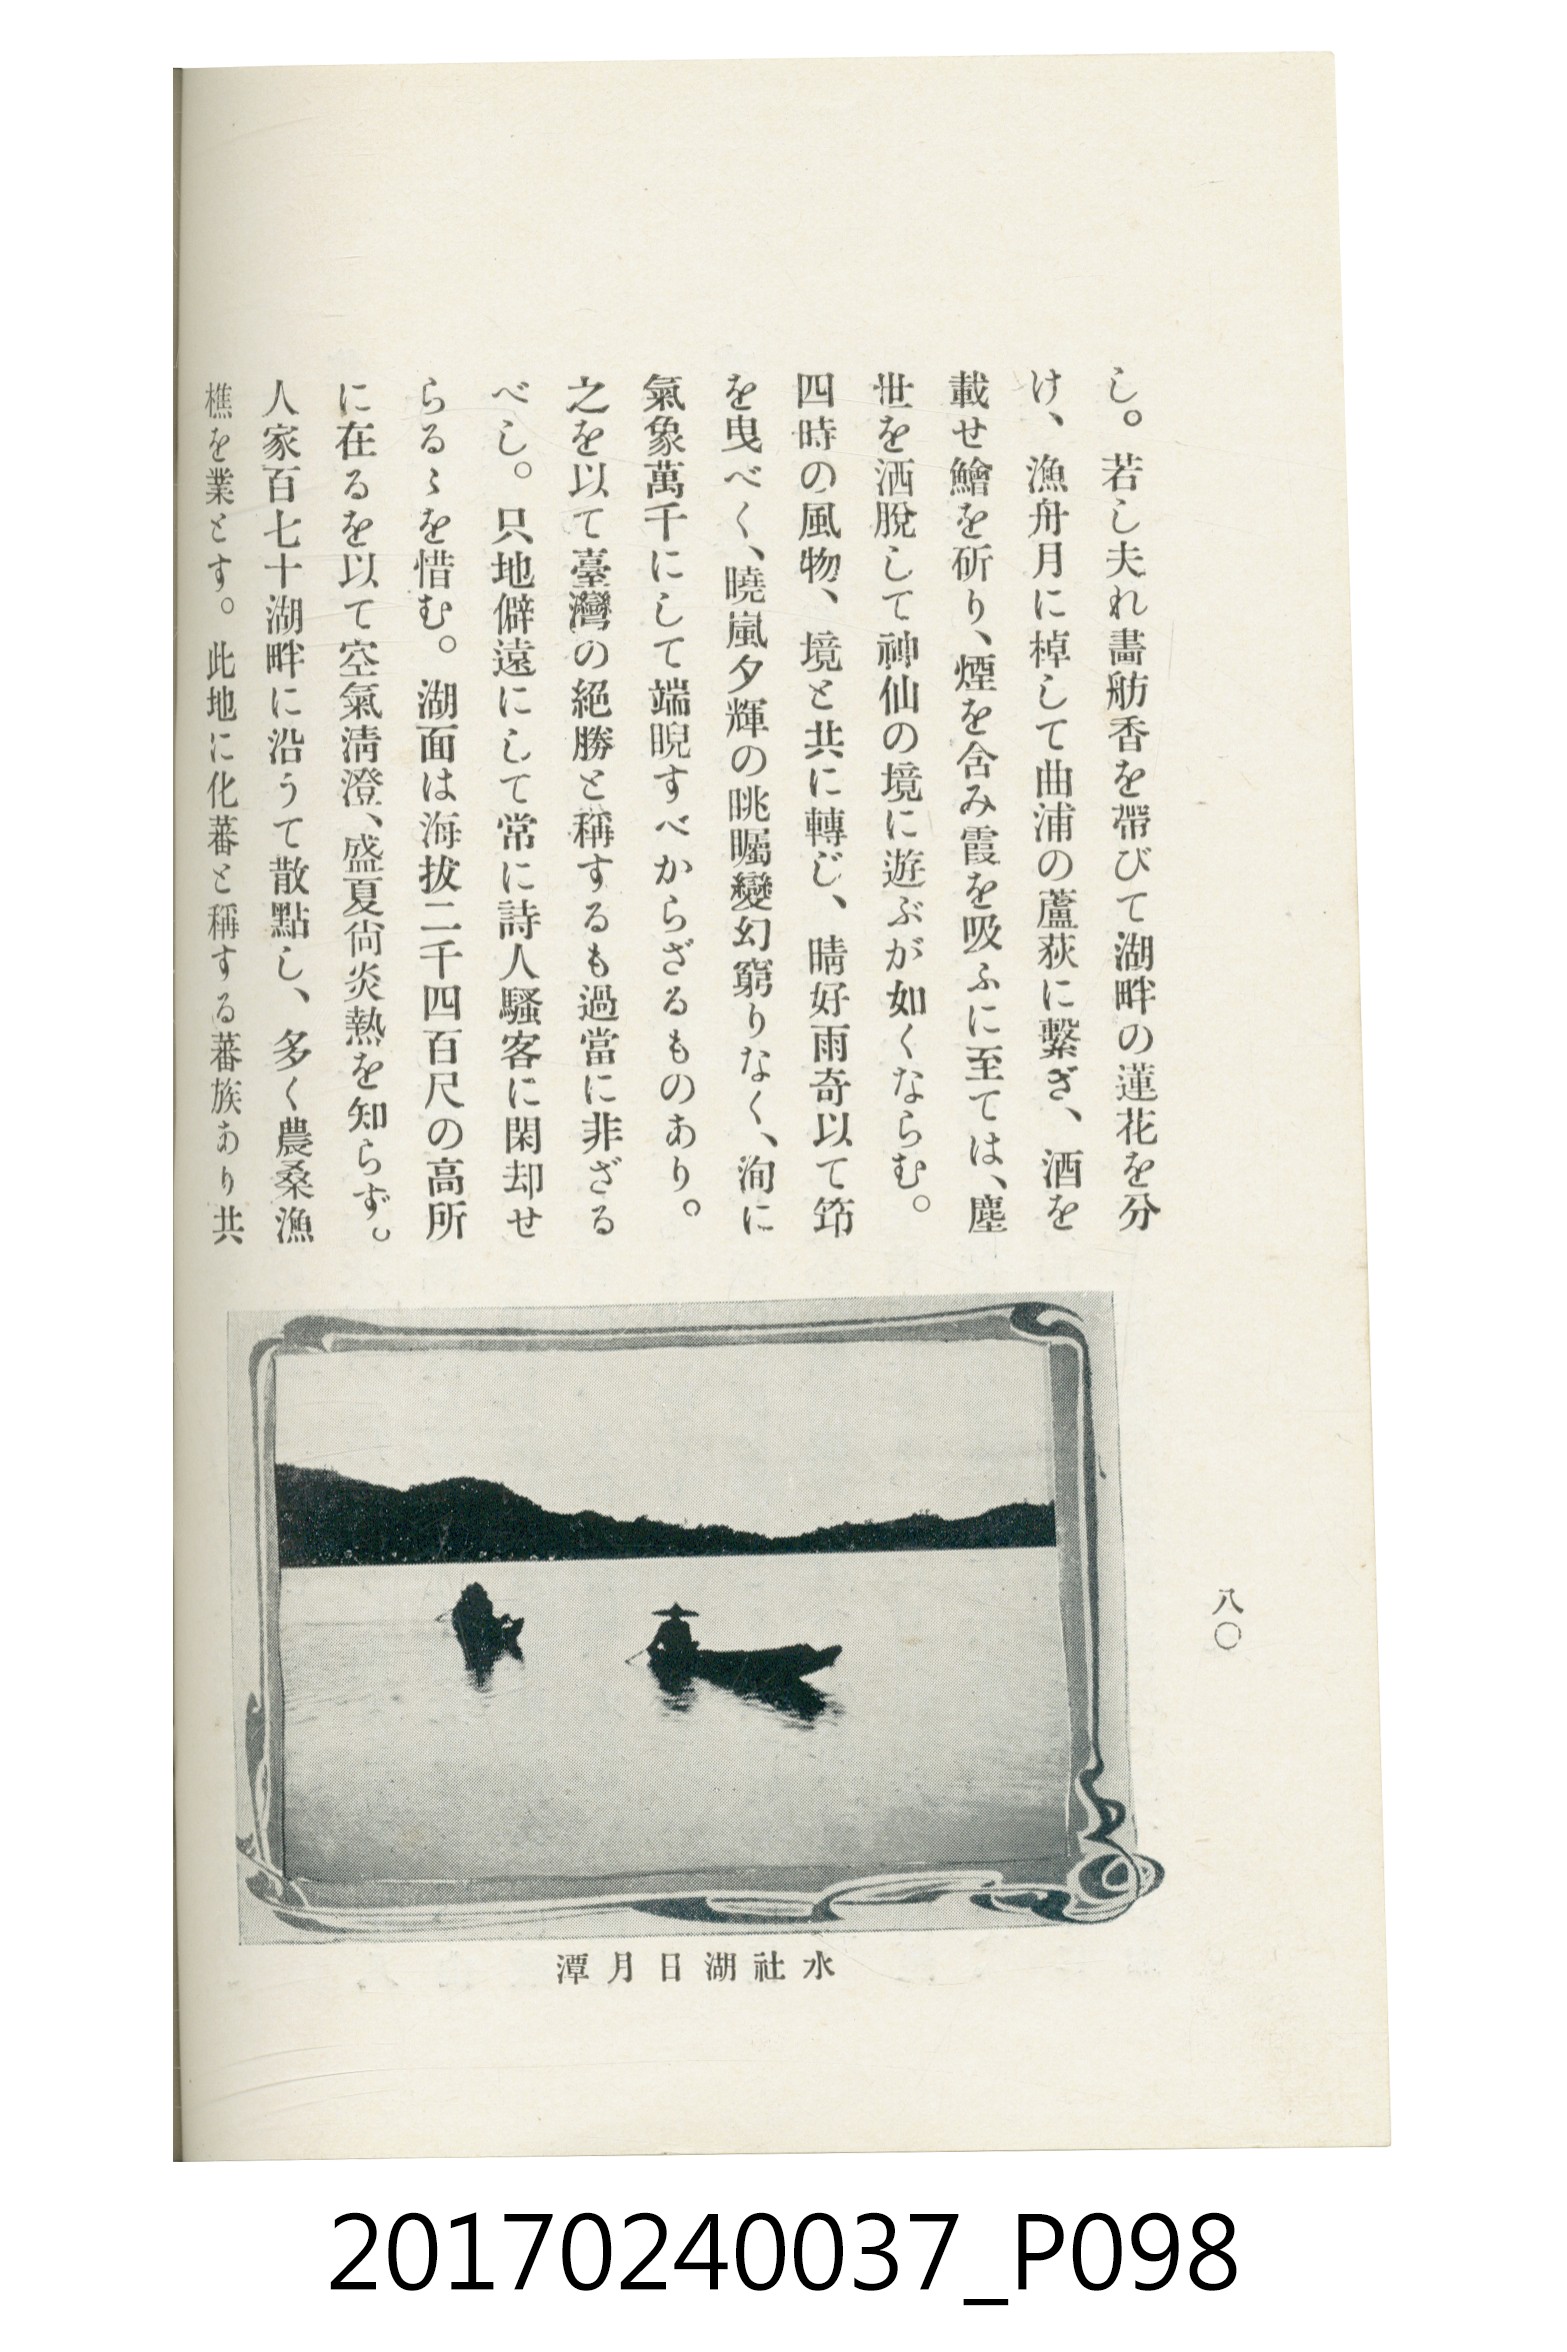 八〇
し。若し夫れ畵舫香を帶びて湖畔の蓮花を分
け、漁舟月に棹して曲浦の蘆荻に繋ぎ、酒を
載せ鱠を斫り、煙を含み霞を吸ふに至ては、塵
世を洒脫して神仙の境に遊ぶが如くならむ。
四時の風物、境と共に轉じ、晴好雨奇以て筇
を曳べく、曉嵐夕輝の眺矚變幻窮りなく、洵に
氣象萬千にして端睨すべからざるものあり。
之を以て臺灣の絕勝と稱するも過當に非ざる
べし。只地僻遠にして常に詩人騷客に閑却せ
らるゝを惜む。湖面は海拔二千四百尺の高所
に在るを以て空氣淸澄、盛夏尙炎熱を知らず。
人家百七十湖畔に沿うて散點し、多く農桑漁
樵を業とす。此地に化蕃と稱する蕃族あり共
水社湖日月潭
20170240037_P098